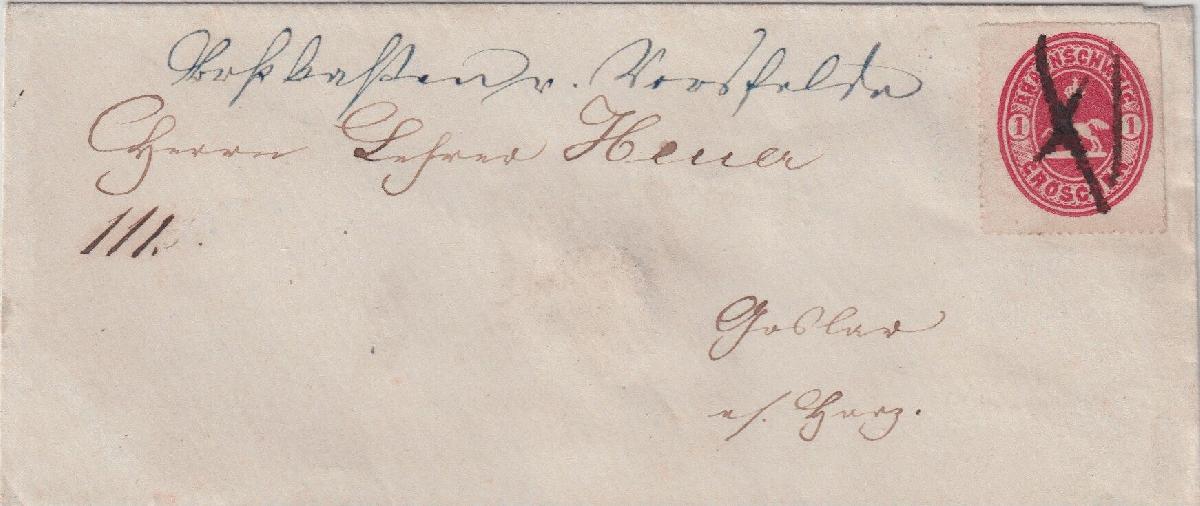 Briefkasten v. Vorsfelde
Herrn Lehrer Heuer
111.
Goslar
a/. Harz.
BRAUNSCHWEIG
1 1
GROSCHEN